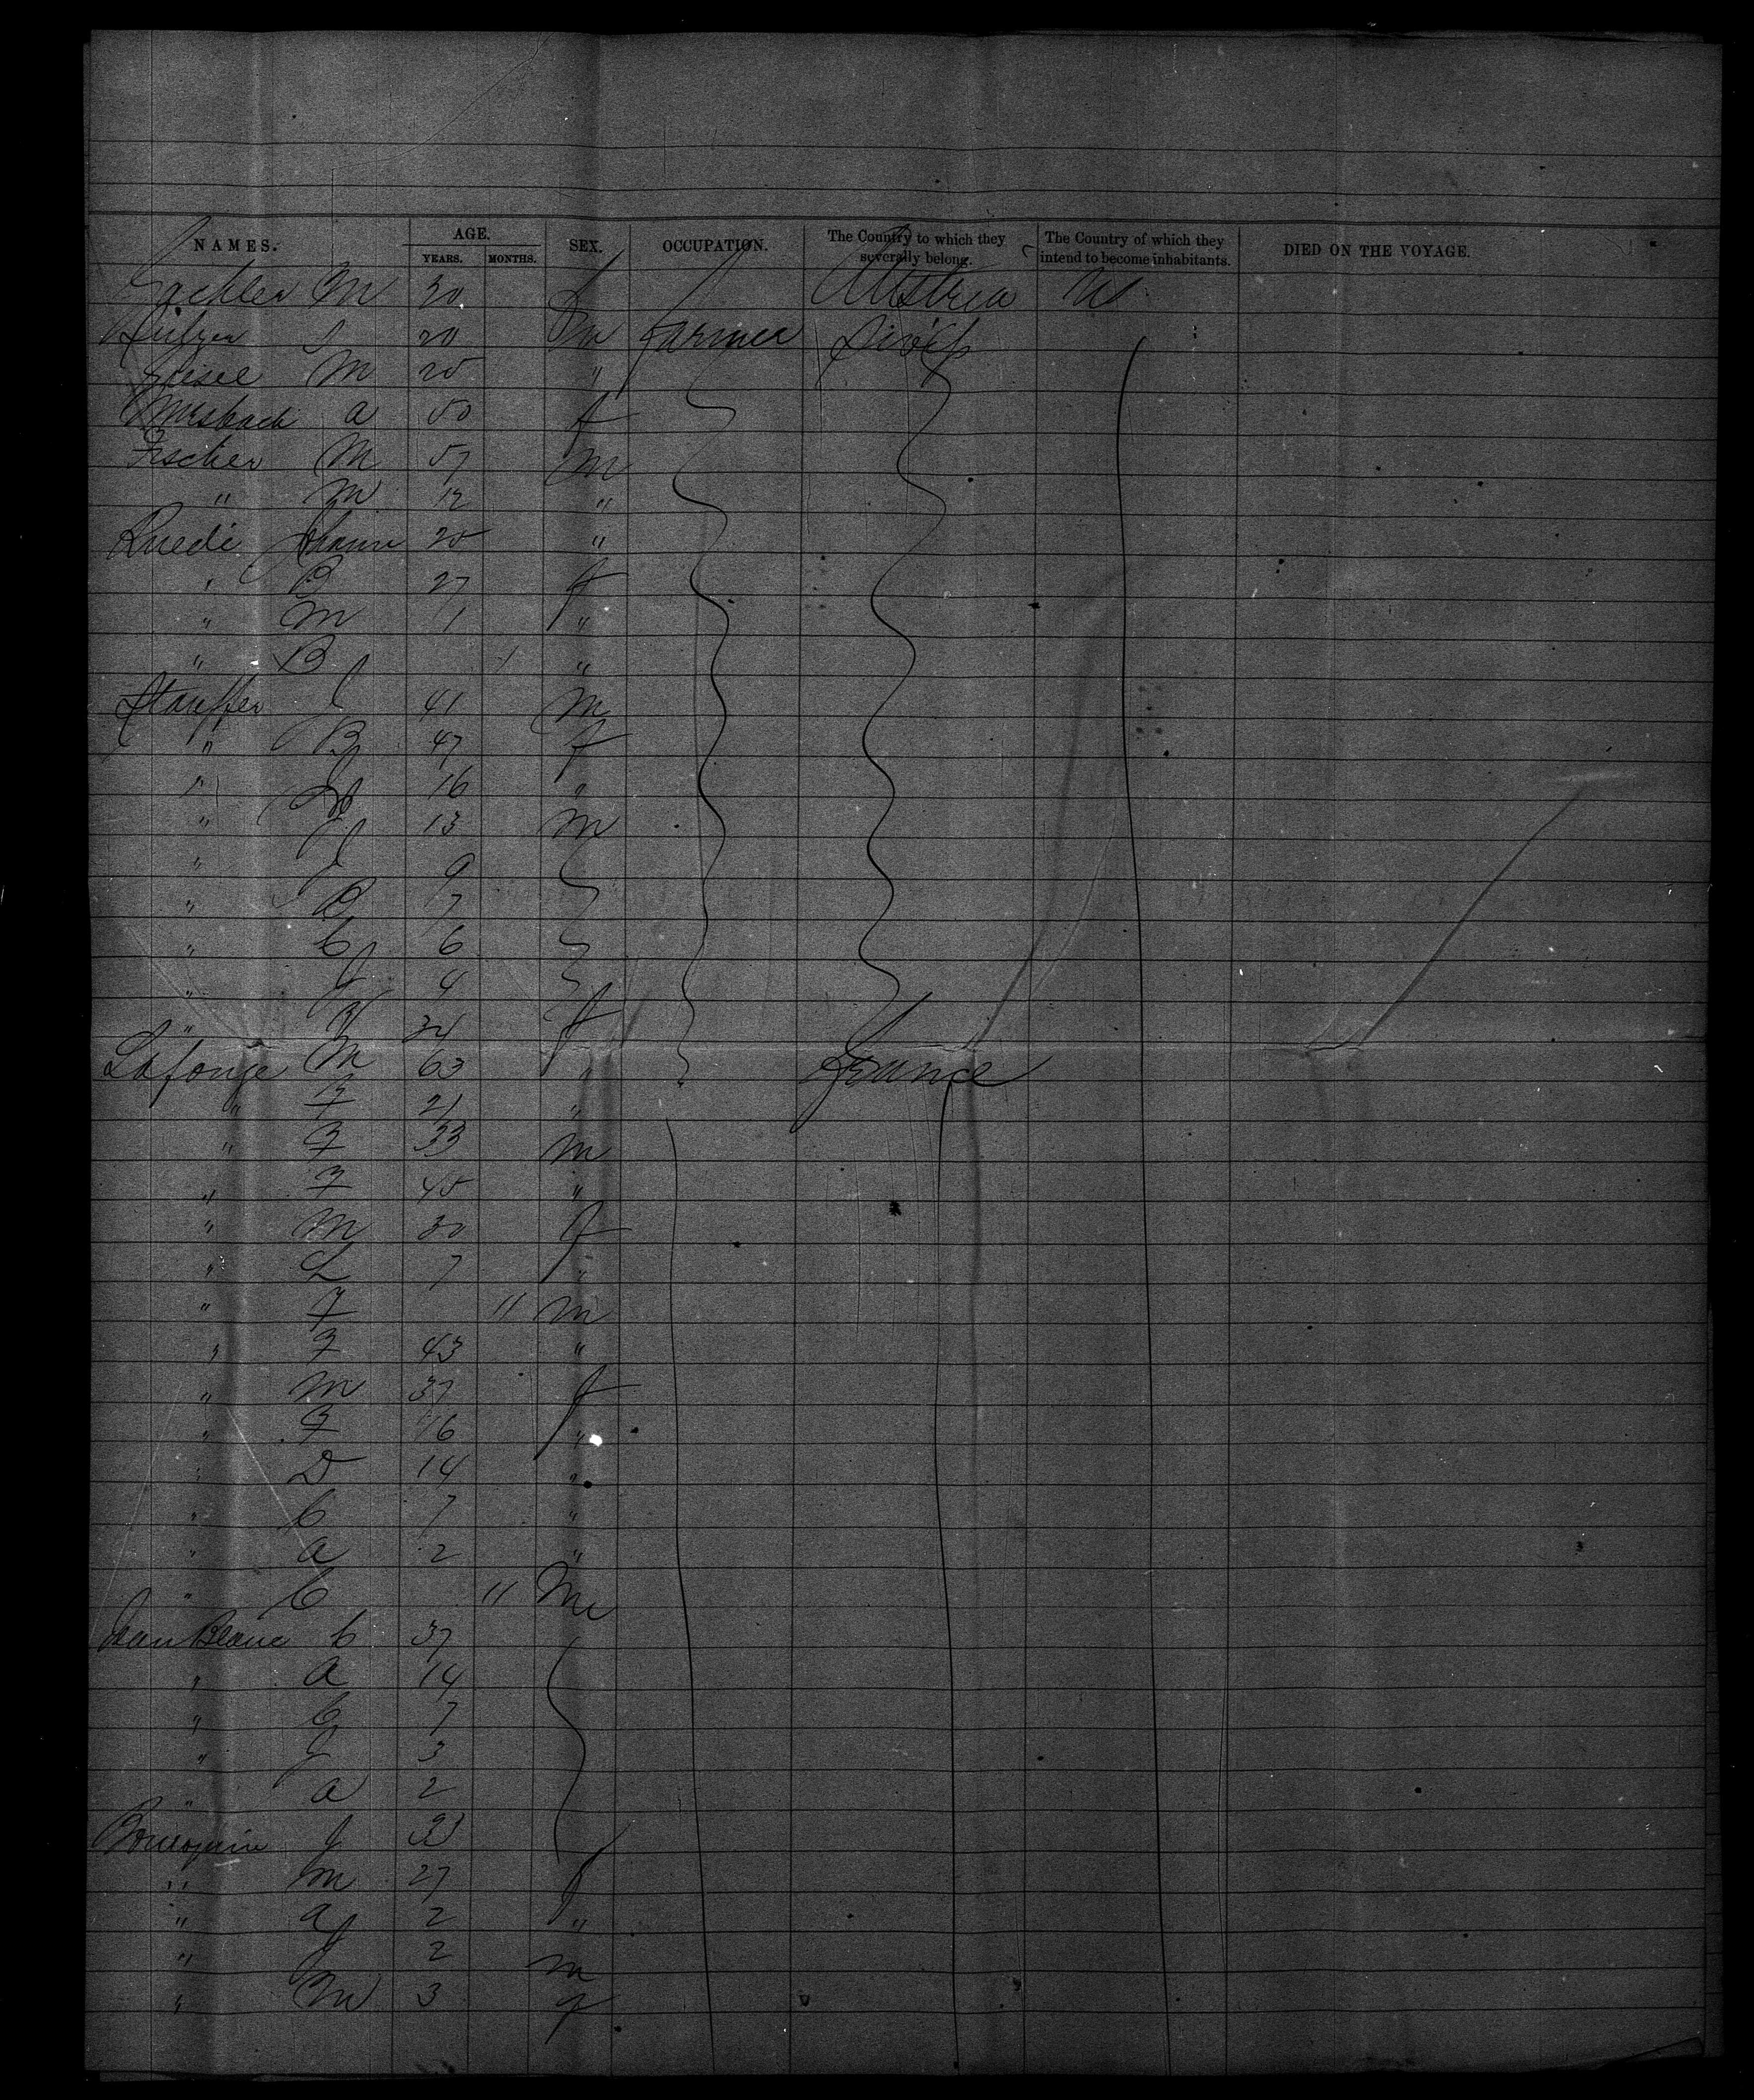 NAMES. AGE. YEARS. MONTHS. SEX. OCCUPATION. The Country to which they severally belong. The Country of which they intend to become inhabitants. DIED ON THE VOYAGE.
M 30 f Austria U
20 m Farmer Swiss
Giesel M 25 "
a 50 f
Fischer M 57 m
" M 12 "
Ruedi Johann 25 "
" B 27 f
" M 1 "
" B 1 "
Stauffer J 41 M
" B 47 f
" 16 "
" J 13 m
" J 9
" R 7
" C 6
" J 4
" f
Lafonge M 63 " France
" F 21 "
" F 33 m
" F 45 "
" M 30 f
" L 7 "
" F 11 m
" F 43 "
" M 37 f
" F 16 "
" D 14 "
" C 7 "
" A 2 "
" C 11 M
Jean Blanc C 37
" A 14
" C 7
" J 3
" A 2
J
" M 27 f
" A 2 "
" J 2 m
" M 3 f